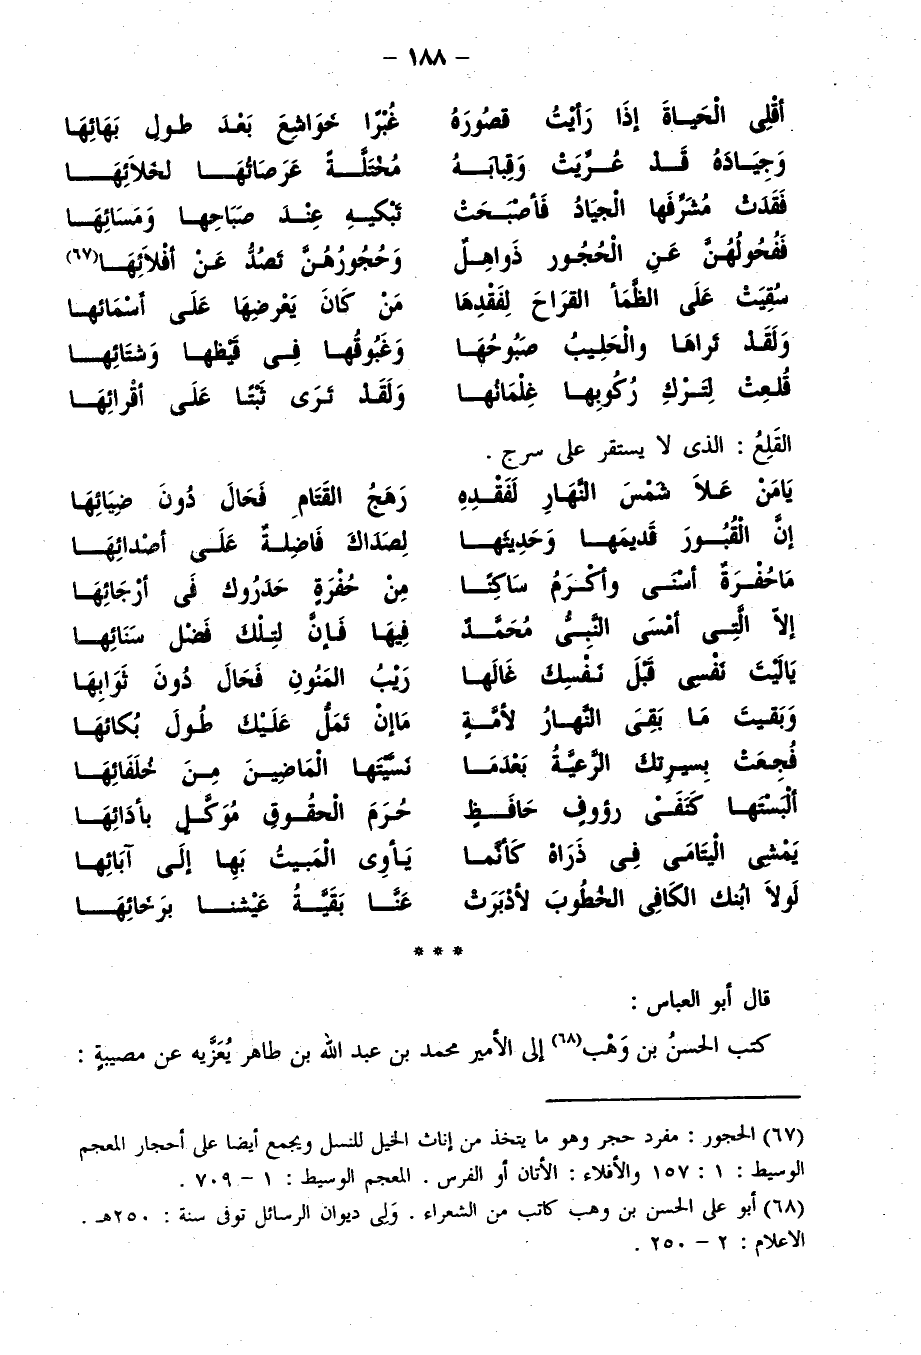 – ١٨٨ –
أقْلِى الْحَيـاةَ إذَا رَأيْتُ قصُورَهُ غُبْرًا خَوَاشِعَ بَعْدَ طولِ بَهَائِهَا
وَجِيَـادَهُ قَـدْ عُـرِّيَتْ وَقِبابَـهُ مُخْتَلَّـةً عَرَصَاتُهَـا لخلائِهَـا
فَقَدَتْ مُشَرِّفَها الْجيَادُ فَأصْبَـحَتْ تَبْكيـهِ عِنْـدَ صَبَاحِهـا وَمَسَائِهَـا
فَفُحُولُهُنَّ عَنِ الْحُجُور ذَواهِـلٌ وَحُجُورُهُـنَّ تَصُدُّ عَـنْ أفْلاَئِهَـا(٦٧)
سُقِيَتْ عَلَى الظَّمَأ القرَاحَ لِفَقْدِهَا مَنْ كَانَ يَعْرضِهَا عَلَـى أسْمَائهـا
وَلَقَـدْ تَراهَـا والْحَلِـيبُ صَبُوحُهَـا وَغَبُوقُهـا فِـى قَيْظهـا وَشتَائِهـا
قُلـعِتْ لِتَـرْكِ رُكُوبِهـا غِلْمَانُهـا وَلَقَـدْ تَـرَى ثَبْتًـا عَلَـى أقْرائِهَـا
القَلِعُ : الذى لا يستقر على سرج .
يَامَنْ عَـلاَ شَمْسَ النَّهَـارِ لَفَقْـدِهِ رَهَجُ القَتَامِ فَحَالَ دُونَ ضِيَائِهَا
إنَّ الْقُبُـورَ قَديمَهـا وَحَدِيثَهـا لِصَدَاكَ فَاضِلـةٌ عَلَـى أصْدائِهَـا
مَاحُفْـرَةٌ أسْنَـى وأكْـرَمُ ساكِنًـا مِنْ حُفْرَةٍ حَدَرُوك فَى أرْجَائِهَا
إلاّ الَّتِـى أمْسَى النَّبِـىُّ مُحَمَّـدٌ فِيهَا فَـإنَّ لتِـلْكَ فَضْلَ سَنَائِهـا
يَالَيْتَ نَفْسِى قَبْلَ نَـفْسِكَ غَالَهـا رَيْبُ المَنُونِ فَحَالَ دُونَ ثَوَابِهَا
وَبَقيتَ مَـا بَقِـىَ النَّهـارُ لأمَّـةٍ مَاإنْ تَمَلُّ عَلَـيْكَ طُولَ بُكائهَـا
فُجعَتْ بِسيـرتكَ الرَّعيَّـةُ بَعْدَمَـا نَسيَّتَهـا الْمَاضِيـنَ مِـنَ خُلَفَائِهَـا
ألْبَسْتَهـا كَنَفَـىْ رؤوفٍ حَافَـظٍ حُـرَمَ الْحقُـوقِ مُوَكَّـلٍ بأدَائِهَـا
يَمْشِى الْيتَامَـى فِـى ذَرَاهْ كَأنَّمـا يَـأوِى الْمَبـيتُ بَهِـا إلَـى آبَائِهـا
لَولاَ ابْنك الكَافِى الخُطُوبَ لأدْبَرَتْ عَنَّـا بَقَيَّـةُ عَيْشنـا برَخَائِهَـا
* * *
قال أبو العباس :
كتب الحسنُ بن وَهْب(٦٨) إلى الأمير محمد بن عبد الله بن طاهر يُعَزَّيه عن مصيبةٍ :
(٦٧) الحجور : مفرد حجر وهو ما يتخذ من إناث الخيل للنسل ويجمع أيضا على أحجار المعجم
الوسيط : ١ : ١٥٧ والأفلاء : الأتان أو الفرس . المعجم الوسيط : ١ – ٧٠٩ .
(٦٨) أبو على الحسن بن وهب كاتب من الشعراء . وَلِى ديوان الرسائل توفى سنة : ٢٥٠هـ .
الاعلام : ٢ – ٢٥٠ .